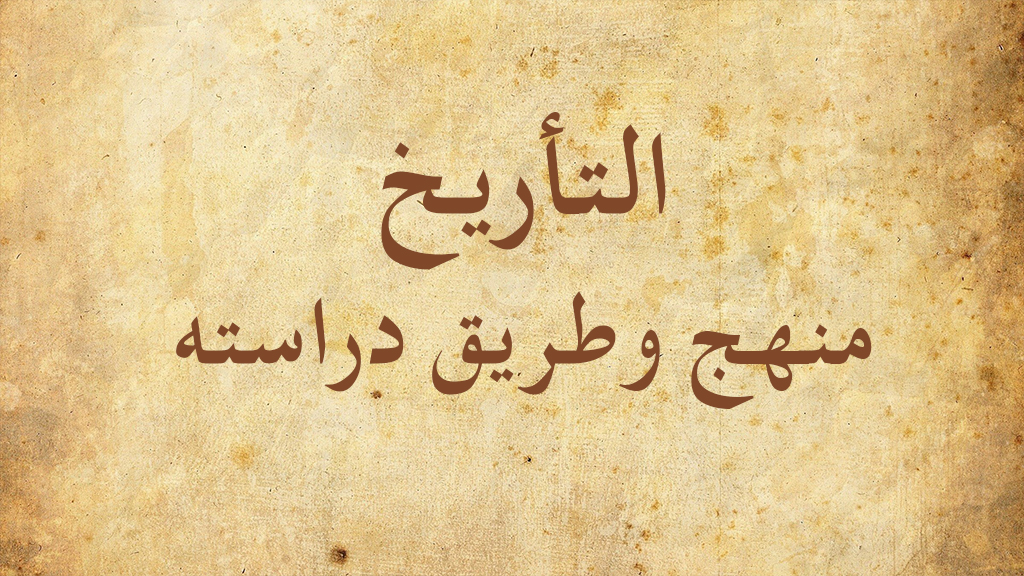 التأريخ
منهج وطريق دراسته